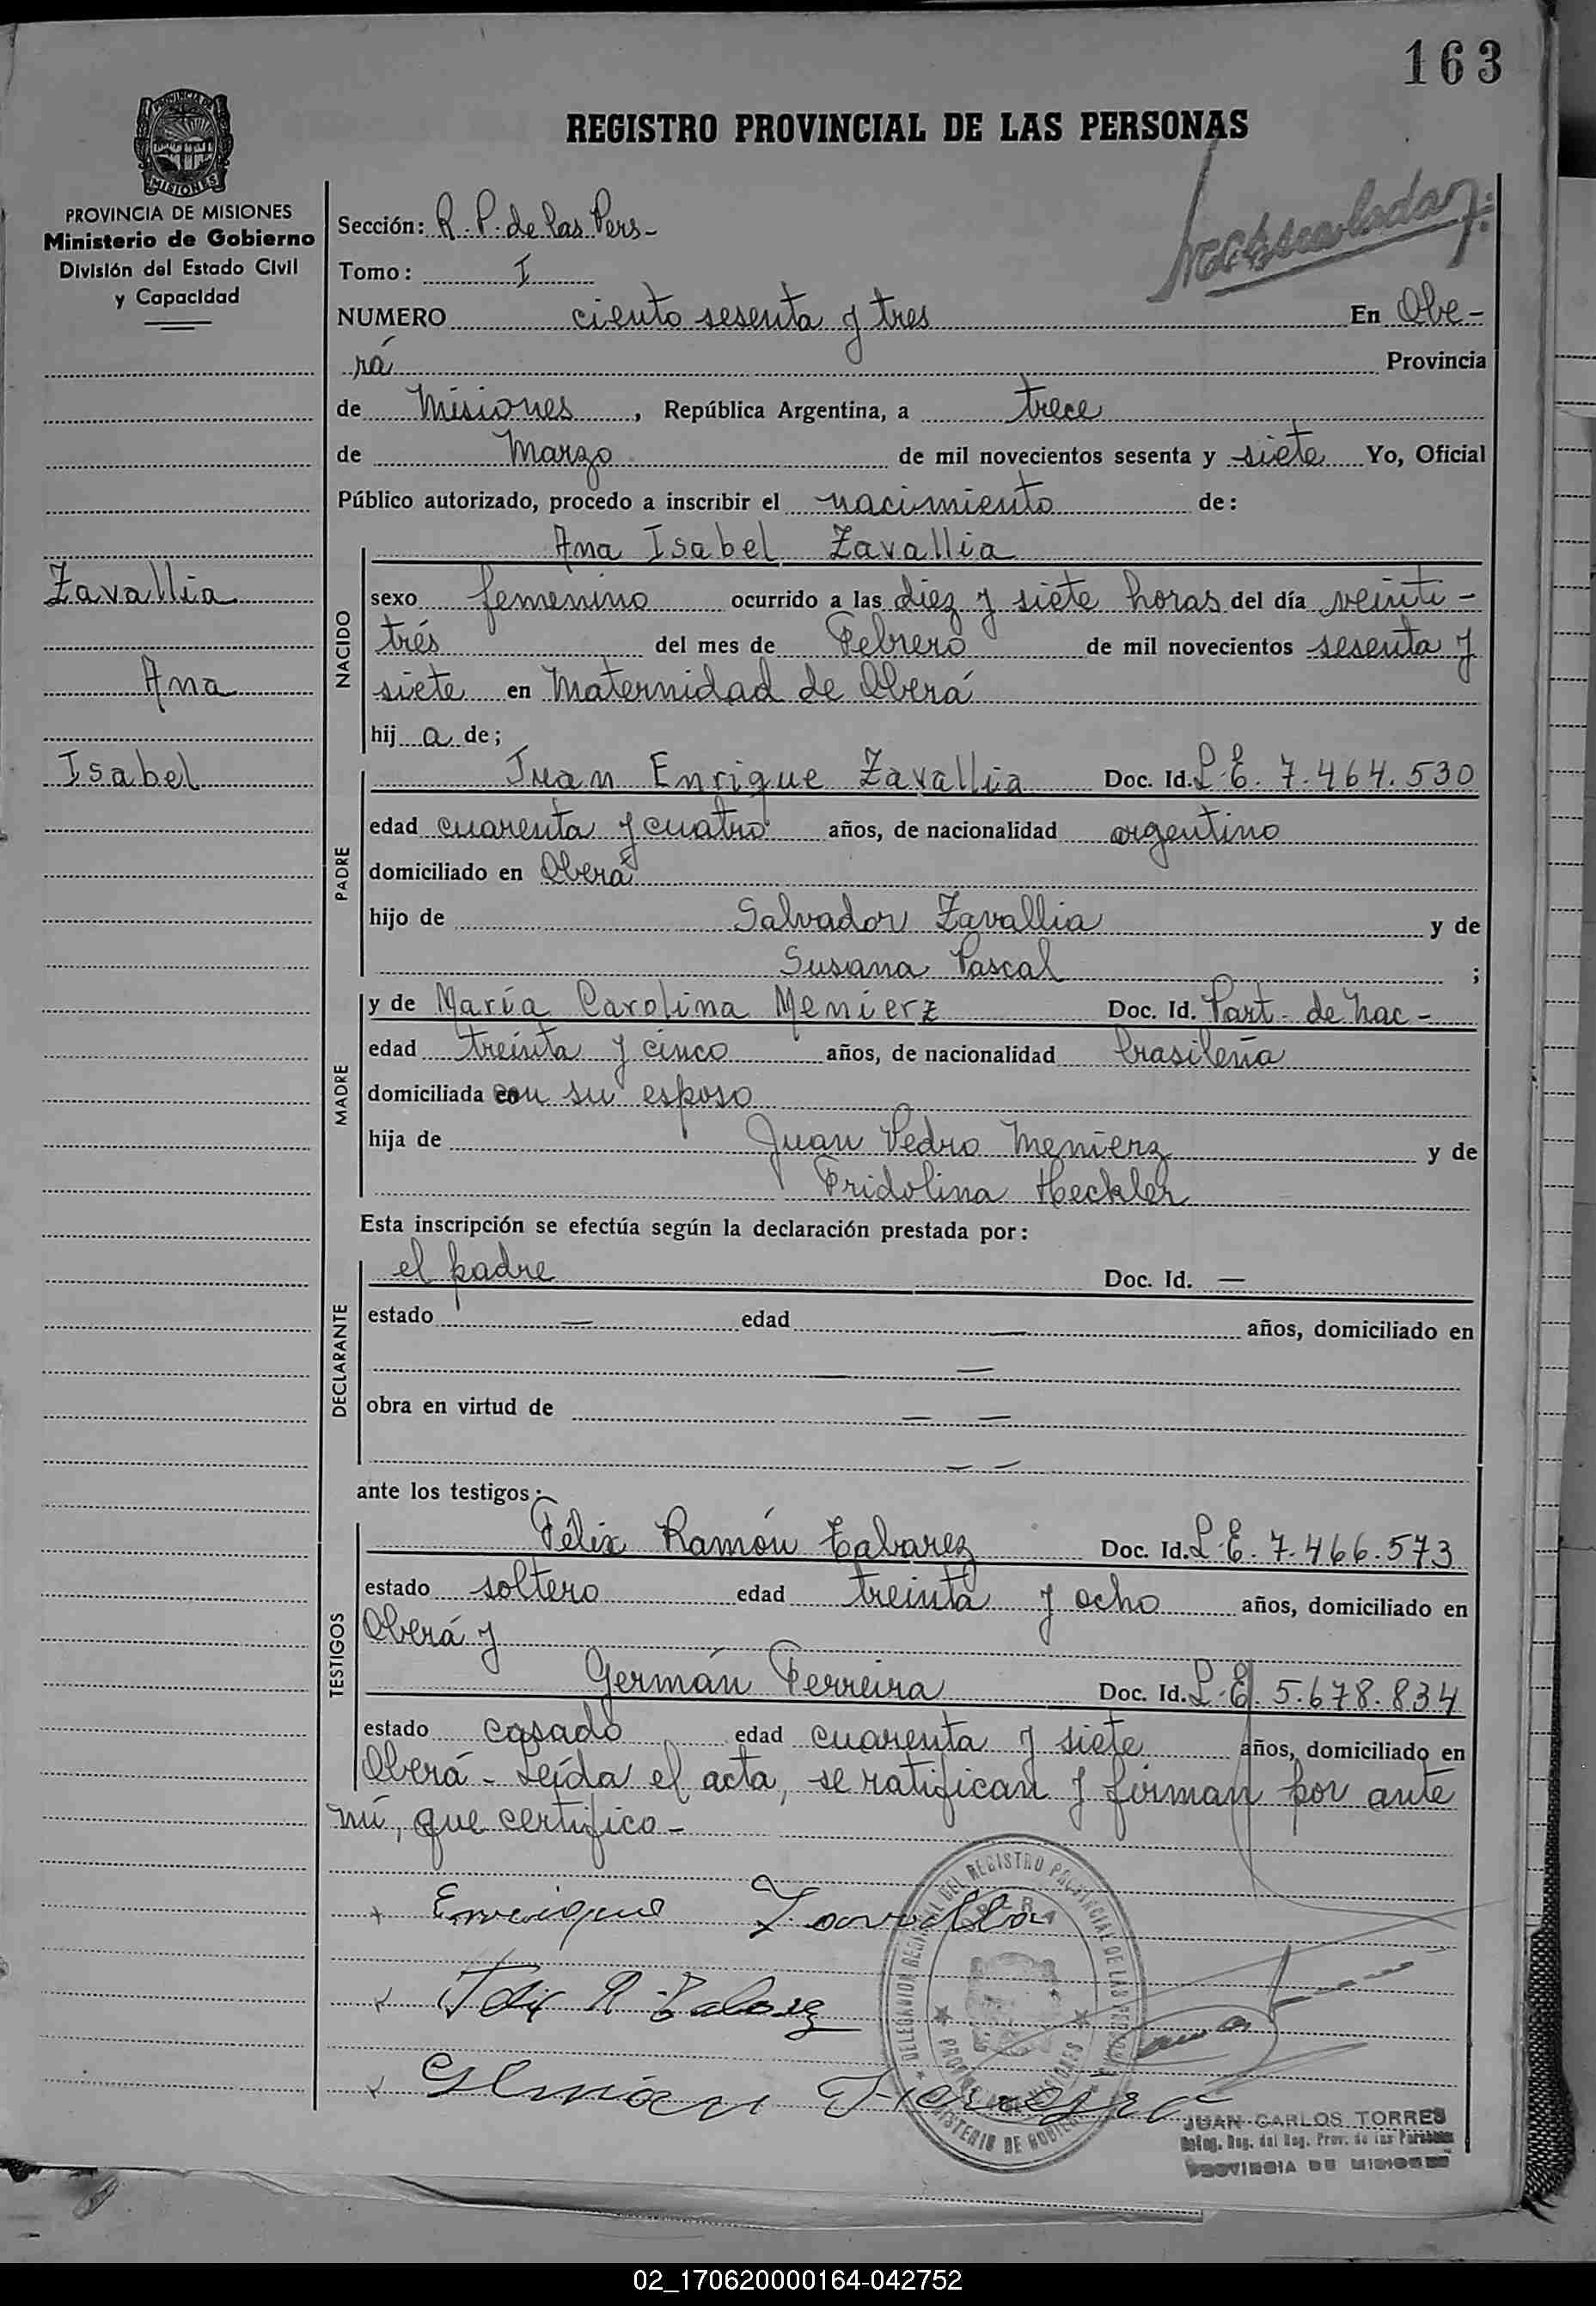 163
REGISTRO PROVINCIAL DE LAS PERSONAS
PROVINCIA DE MISIONES
Ministerio de Gobierno
División del Estado Civil
y Capacidad
Sección: R. P. de las Pers-
Tomo: I
NUMERO ciento sesenta y tres En Obe-
rá Provincia
de Misiones, República Argentina, a trece
de Marzo de mil novecientos sesenta y siete Yo, Oficial
Público autorizado, procedo a inscribir el nacimiento de:
Ana Isabel Zavallia
Zavallia
Ana
Isabel
NACIDO
sexo femenino ocurrido a las diez y siete horas del día veinti-
trés del mes de Febrero de mil novecientos sesenta y
siete en Maternidad de Oberá
hij a de;
PADRE
Juan Enrique Zavallia Doc. Id. L.E. 7.464.530
edad cuarenta y cuatro años, de nacionalidad argentino
domiciliado en Oberá
hijo de Salvador Zavallia y de
Susana Pascal ;
MADRE
y de María Carolina Menierz Doc. Id. Part. de Nac-
edad treinta y cinco años, de nacionalidad brasileña
domiciliada con su esposo
hija de Juan Pedro Menierz y de
Fridolina Heckler
Esta inscripción se efectúa según la declaración prestada por:
DECLARANTE
el padre Doc. Id. —
estado — edad — años, domiciliado en
— —
obra en virtud de — —
— —
ante los testigos:
TESTIGOS
Félix Ramón Tabarez Doc. Id. L.E. 7.466.573
estado soltero edad treinta y ocho años, domiciliado en
Oberá y
Germán Ferreira Doc. Id. L.E. 5.678.834
estado casado edad cuarenta y siete años, domiciliado en
Oberá - Leída el acta, se ratifican y firman por ante
mí, que certifico -
Enrique Zavallia
Felix R Tabarez
German Ferreira
DELEGACION REGIONAL DEL REGISTRO PROVINCIAL DE LAS PERSONAS
OBERA
PROVINCIA DE MISIONES
MINISTERIO DE GOBIERNO
JUAN CARLOS TORRES
Deleg. Reg. del Reg. Prov. de las Personas
PROVINCIA DE MISIONES
02_170620000164-042752